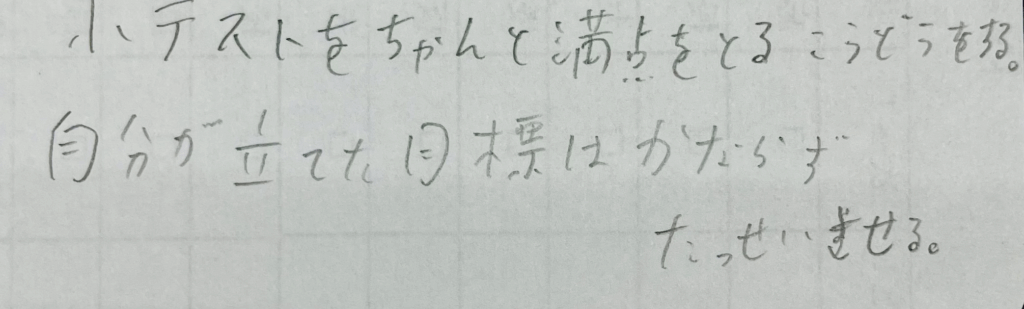 小テストをちゃんと満点をとるこうどうをする。
自分が立てた目標はかならず
たっせいさせる。